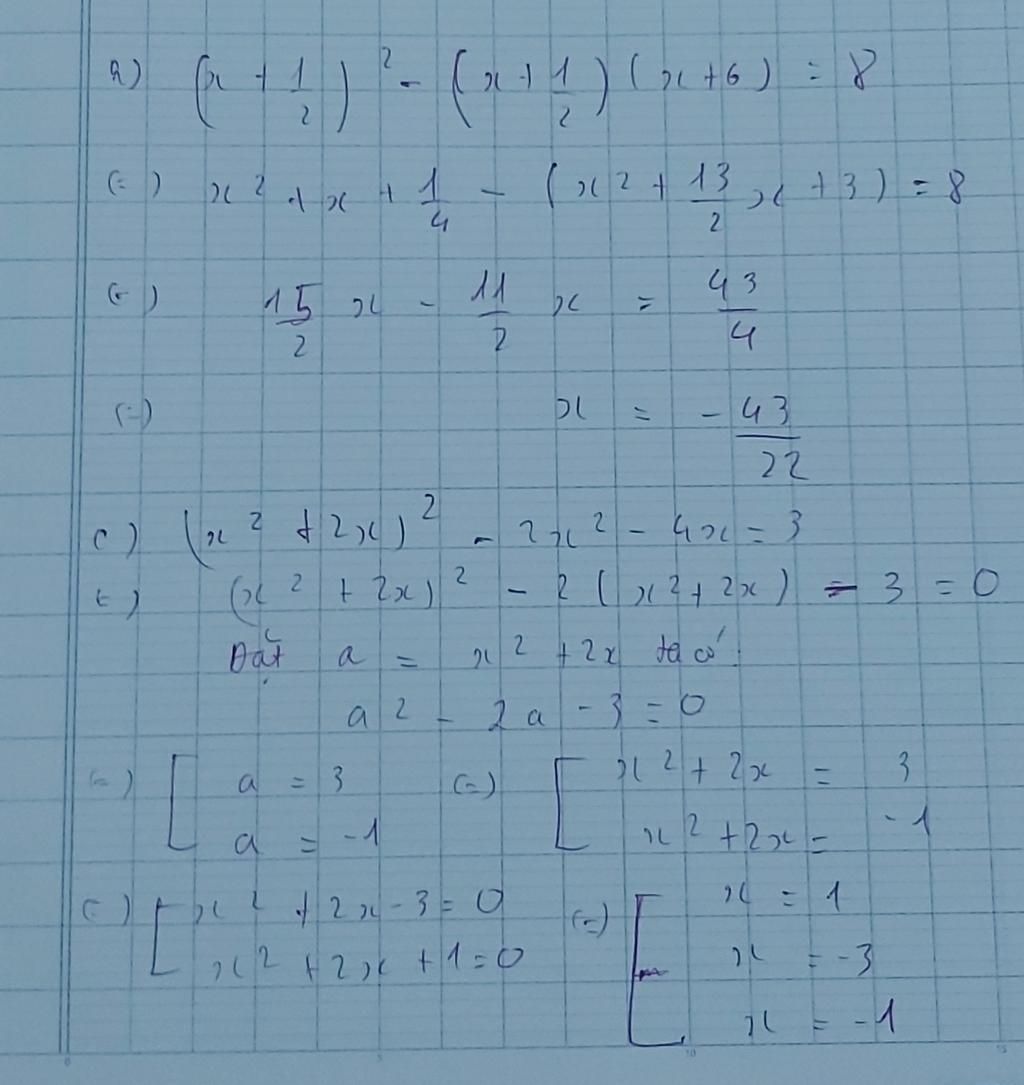 a) (x + 1/2)² - (x + 1/2)(x+6) = 8
(=) x² + x + 1/4 - (x² + 13/2 x + 3) = 8
(=) 15/2 x - 11/2 x = 43/4
(=) x = - 43/22
c) (x² + 2x)² - 2x² - 4x = 3
(=) (x² + 2x)² - 2(x² + 2x) - 3 = 0
Đặt a = x² + 2x ta có
a² - 2a - 3 = 0
(=) [ a = 3 (=) [ x² + 2x = 3
a = -1 x² + 2x = -1
(=) [ x² + 2x - 3 = 0 (=) [ x = 1
x² + 2x + 1 = 0 x = -3
x = -1